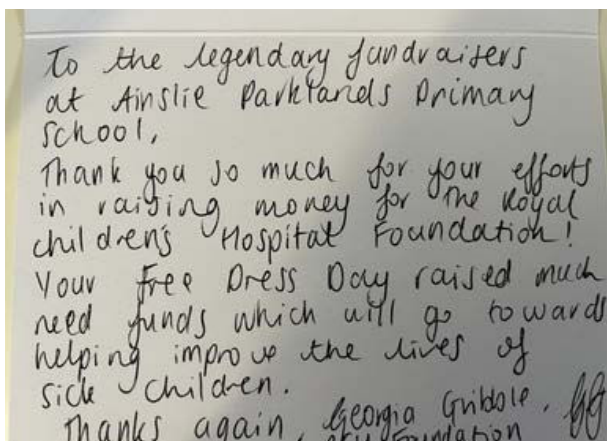 To the legendary fundraisers
at Ainslie Parklands Primary
School,
Thank you so much for your efforts
in raising money for the Royal
children's Hospital Foundation!
Your Free Dress Day raised much
need funds which will go towards
helping improve the lives of
sick children.
Thanks again, Georgia Gribble.
Foundation